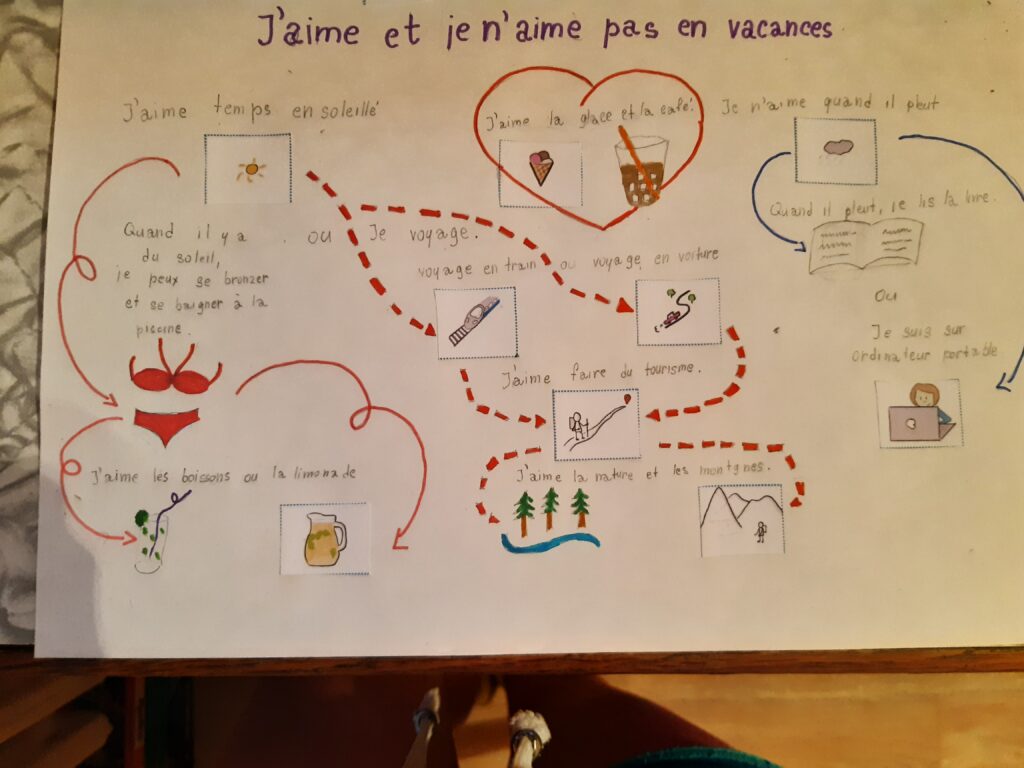 J'aime et je n'aime pas en vacances
J'aime temps ensoleillé
J'aime la glace et la café.
Je n'aime quand il pleut
Quand il y a
du soleil,
je peux se bronzer
et se baigner à la
piscine.
ou Je voyage.
voyage en train ou voyage en voiture
J'aime faire du tourisme.
J'aime la nature et les montgnes.
J'aime les boissons ou la limonade
Quand il pleut, je lis la livre.
ou
Je suis sur
ordinateur portable